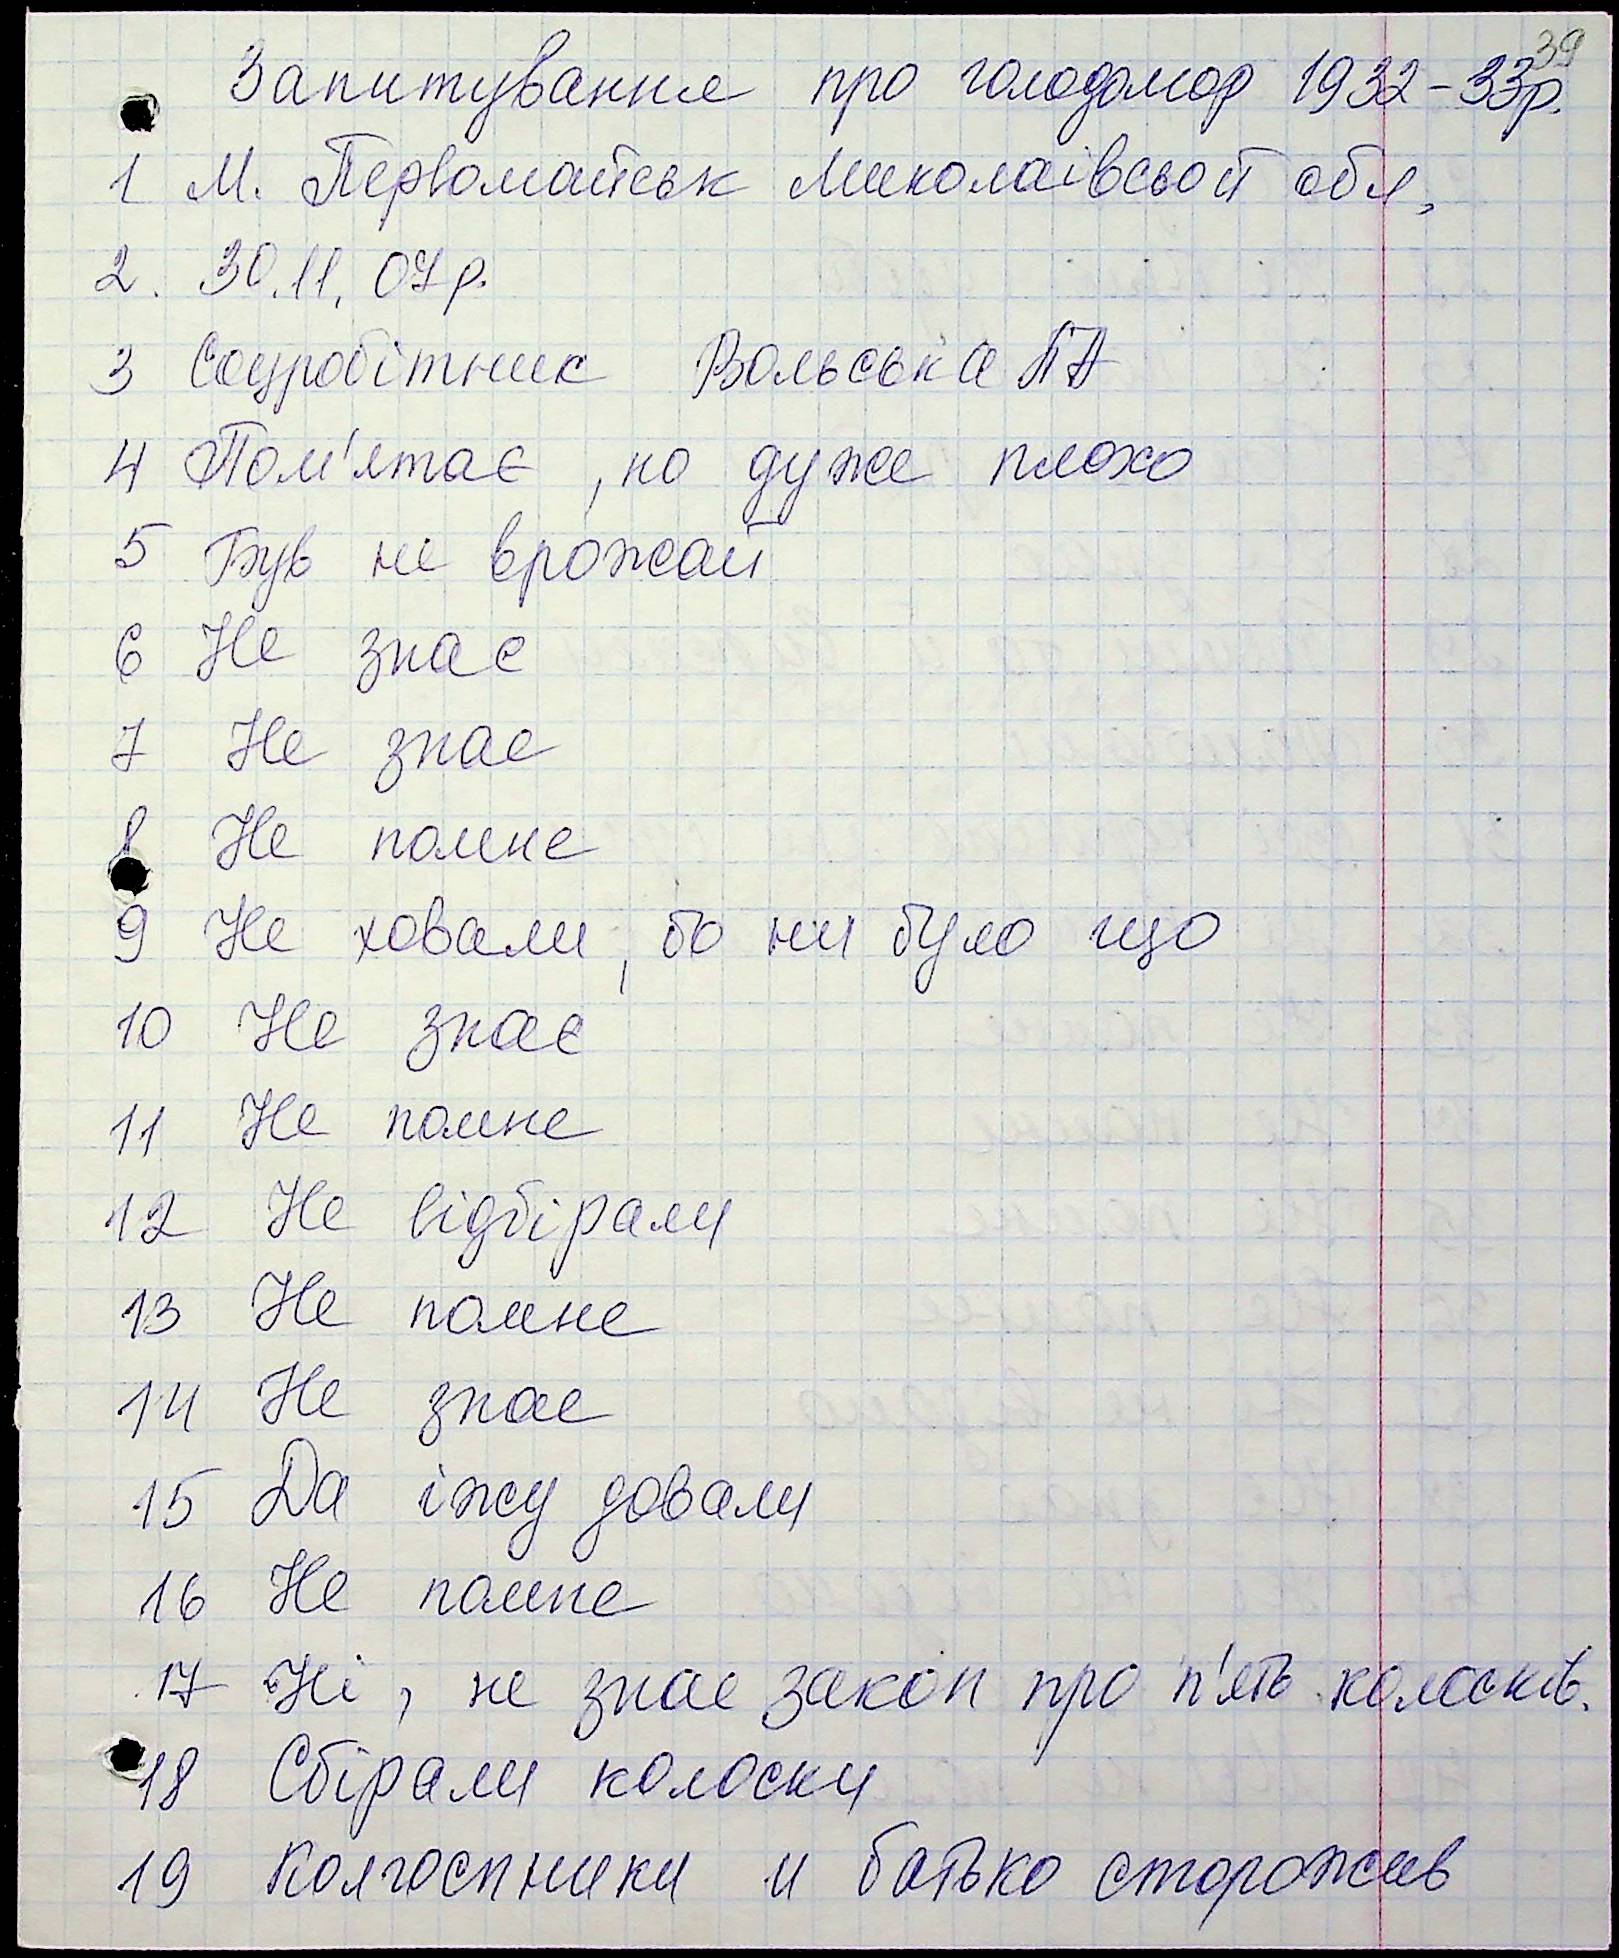 39
Запитування про голодомор 1932-33р.
1 М. Первомайськ Миколаівсьой обл,
2. 30.11.07р.
3 Соцробітник Вольська ЛА
4 Пом'ятає, но дуже плохо
5 Був не врожай
6 Не знає
7 Не знае
8 Не помне
9 Не ховали, бо ни було що
10 Не знає
11 Не помне
12 Не відбірали
13 Не помне
14 Не знае
15 Да іжу довали
16 Не помне
17 Ні, не знае закон про п'ять колосків.
18 Сбірали колоски
19 Колгоспники и батько сторожив